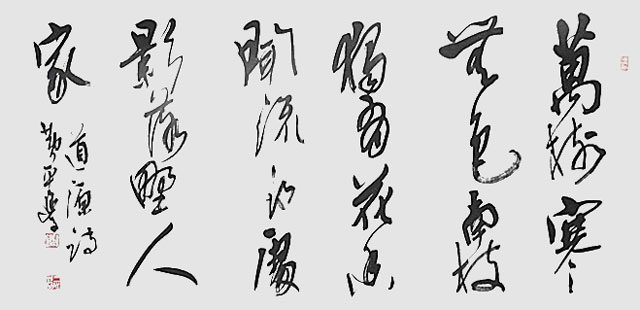 萬樹寒
無色南枝
獨有花香
聞流水處
影落野人
家
道源詩
書